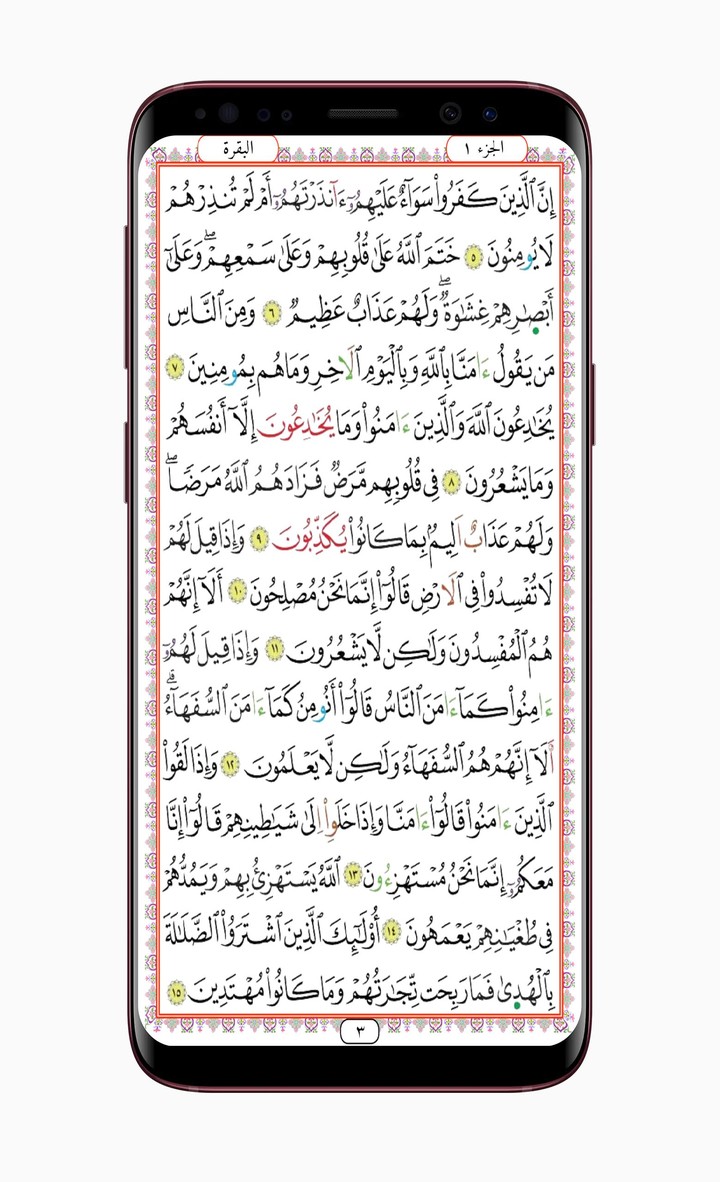 البقرة
الجزء ١
إِنَّ ٱلَّذِينَ كَفَرُواْ سَوَآءٌ عَلَيْهِمُۥٓ ءَآنذَرْتَهُمُۥٓ أَمْ لَمْ تُنذِرْهُمْ
لَا يُومِنُونَ ٥ خَتَمَ ٱللَّهُ عَلَىٰ قُلُوبِهِمْ وَعَلَىٰ سَمْعِهِمْۖ وَعَلَىٰٓ
أَبْصٰ۪رِهِمْ غِشَٰوَةٌۖ وَلَهُمْ عَذَابٌ عَظِيمٌ ٦ وَمِنَ ٱلنَّاسِ
مَن يَقُولُ ءَامَنَّا بِاللَّهِ وَبِالْيَوْمِ ٱلَاخِرِ وَمَا هُم بِمُومِنِينَ ٧
يُخَٰدِعُونَ ٱللَّهَ وَٱلَّذِينَ ءَامَنُواْ وَمَا يُخَٰدِعُونَ إِلَّآ أَنفُسَهُمْ
وَمَا يَشْعُرُونَ ٨ فِى قُلُوبِهِم مَّرَضٌ فَزَادَهُمُ ٱللَّهُ مَرَضًاۖ
وَلَهُمْ عَذَابٌ اَلِيمٌۢ بِمَا كَانُواْ يُكَذِّبُونَ ٩ وَإِذَا قِيلَ لَهُمْ
لَا تُفْسِدُواْ فِى ٱلَارْضِ قَالُوٓاْ إِنَّمَا نَحْنُ مُصْلِحُونَ ١٠ أَلَآ إِنَّهُمْ
هُمُ ٱلْمُفْسِدُونَ وَلَٰكِن لَّا يَشْعُرُونَ ١١ وَإِذَا قِيلَ لَهُمُۥٓ
ءَامِنُواْ كَمَآ ءَامَنَ ٱلنَّاسُ قَالُوٓاْ أَنُومِنُ كَمَآ ءَامَنَ ٱلسُّفَهَآءُۗ
أَلَآ إِنَّهُمْ هُمُ ٱلسُّفَهَآءُ وَلَٰكِن لَّا يَعْلَمُونَ ١٢ وَإِذَا لَقُواْ
ٱلَّذِينَ ءَامَنُواْ قَالُوٓاْ ءَامَنَّا وَإِذَا خَلَوِاْ اِلَىٰ شَيَٰطِينِهِمْ قَالُوٓاْ إِنَّا
مَعَكُمُۥٓ إِنَّمَا نَحْنُ مُسْتَهْزِءُونَ ١٣ ٱللَّهُ يَسْتَهْزِئُ بِهِمْ وَيَمُدُّهُمْ
فِى طُغْيَٰنِهِمْ يَعْمَهُونَ ١٤ أُوْلَٰٓئِكَ ٱلَّذِينَ ٱشْتَرَوُاْ ٱلضَّلَٰلَةَ
بِالْهُد۪ىٰ فَمَا رَبِحَت تِّجَٰرَتُهُمْ وَمَا كَانُواْ مُهْتَدِينَ ١٥
٣